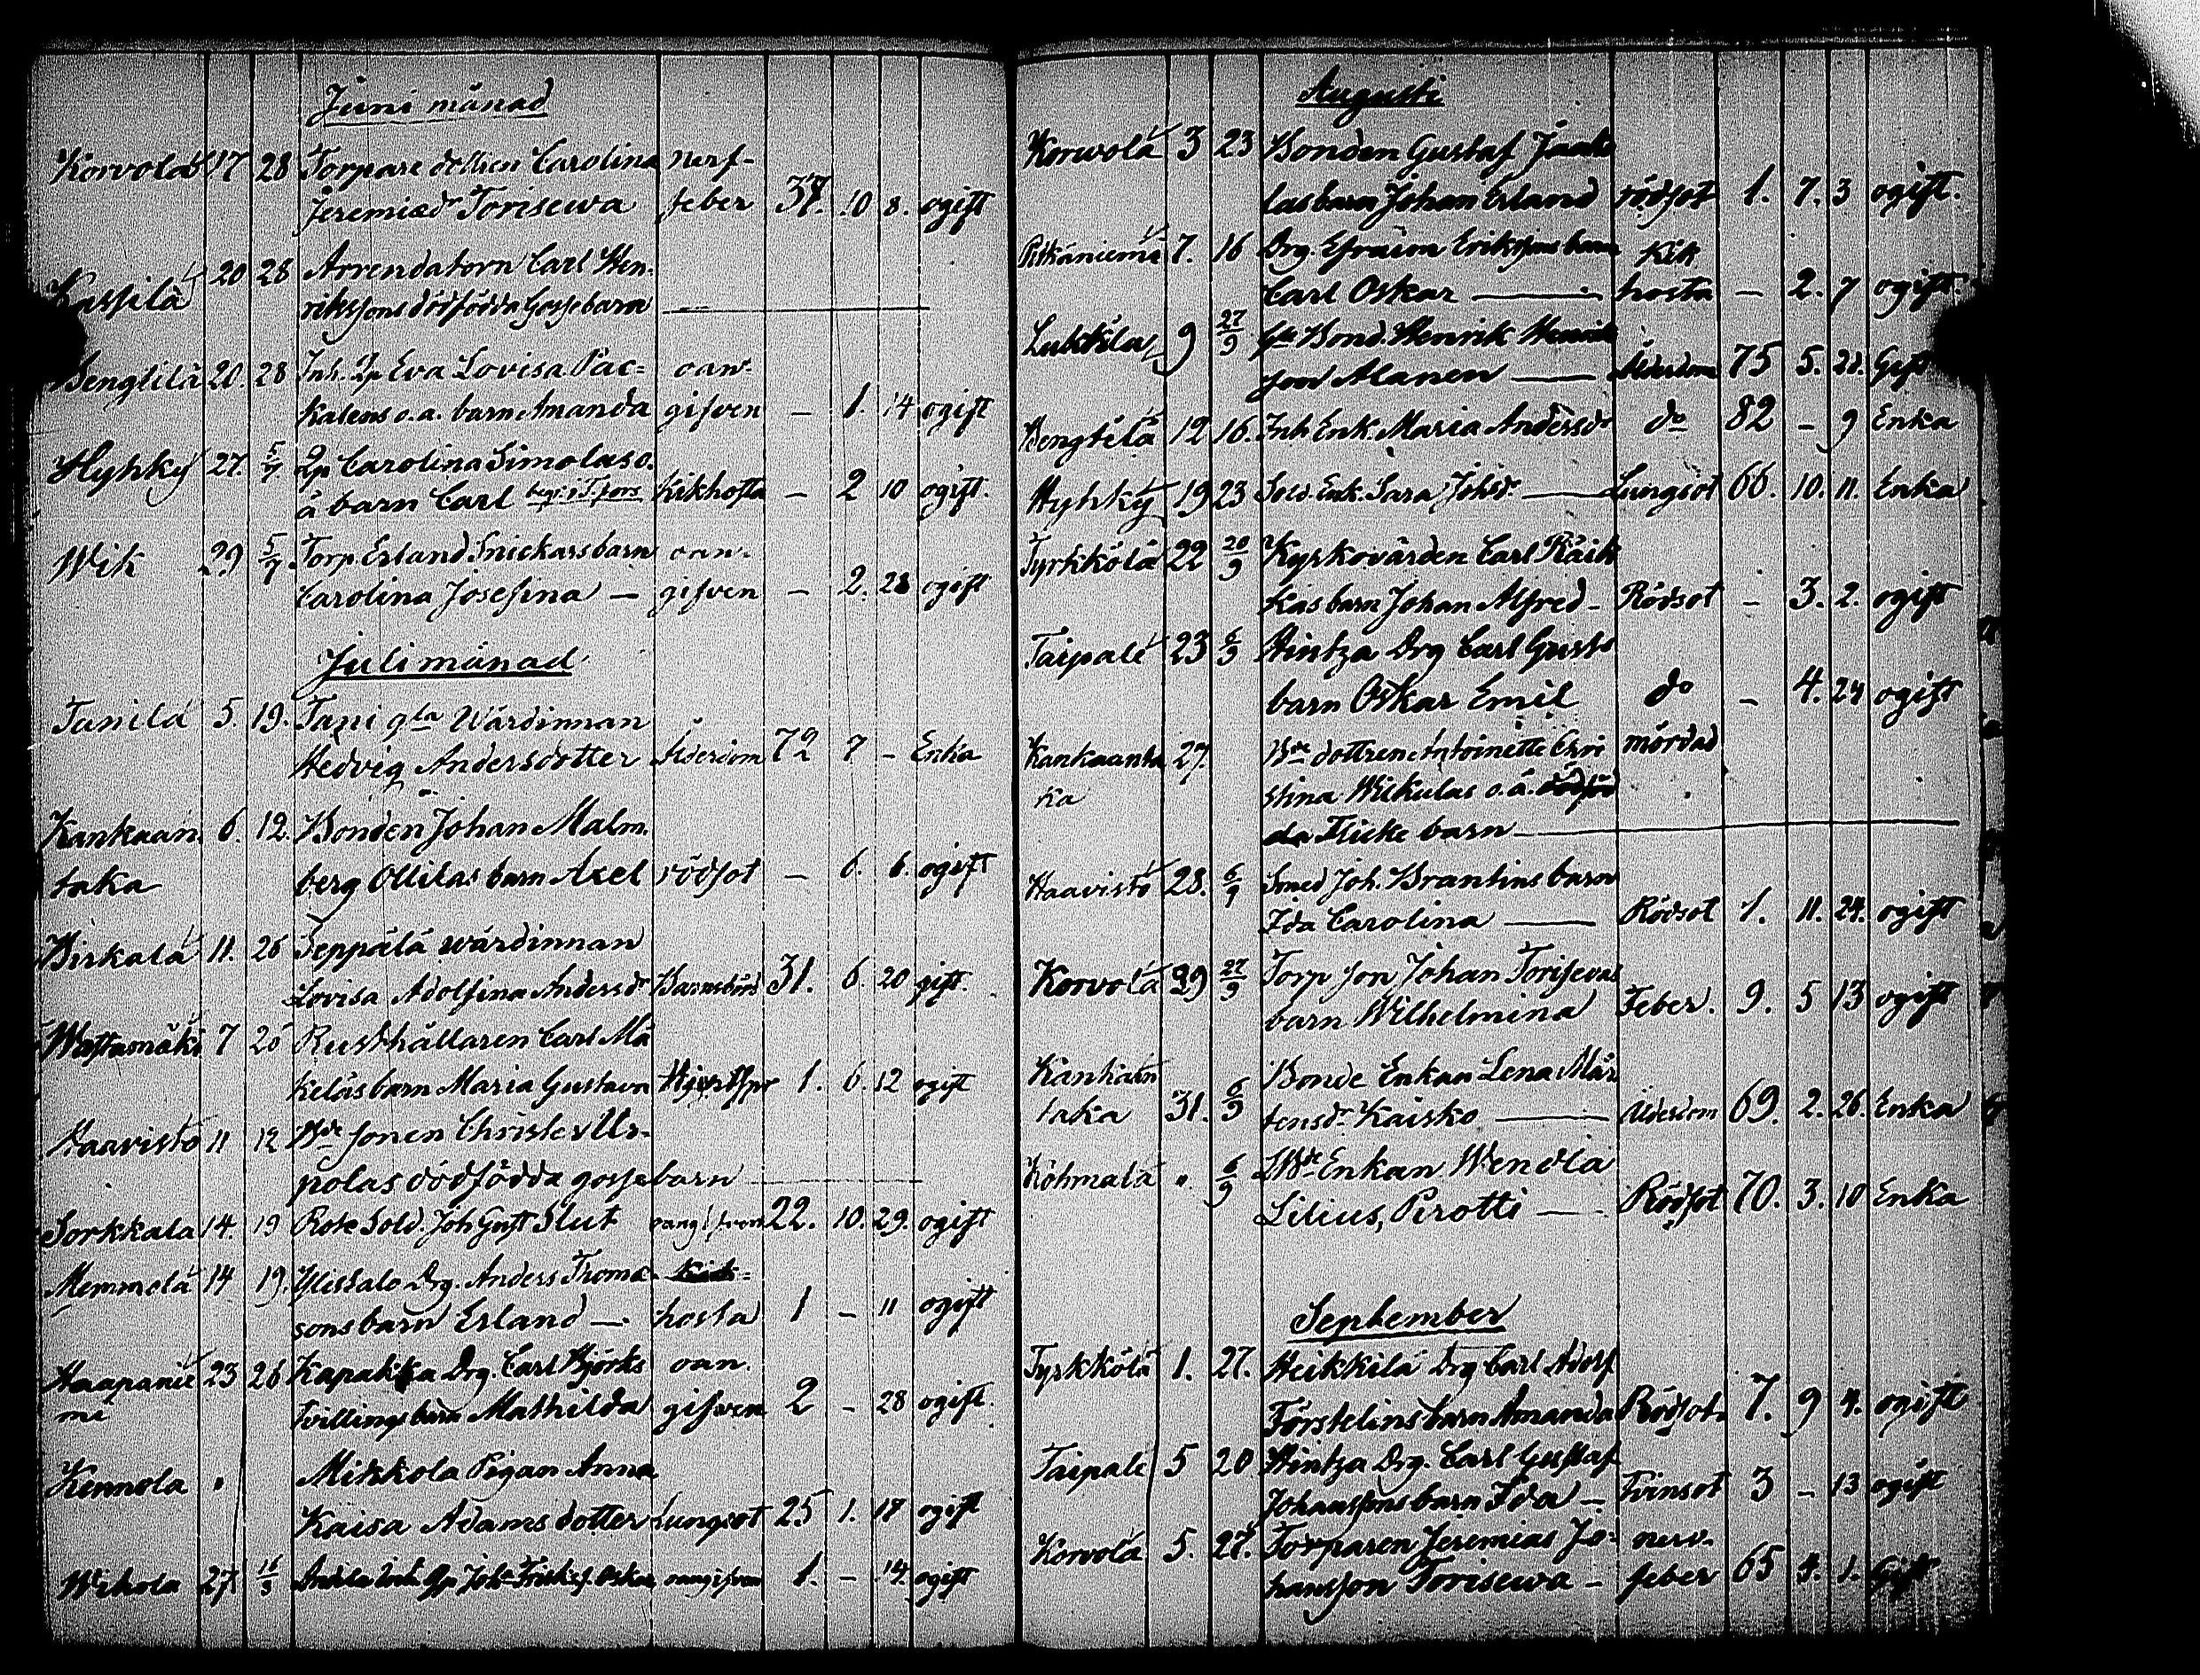 Juni månad
Korvola 17 28 Torpare dottren Carolina nerf-
Jeremiædr Torisewa feber 37. 10 8. ogift
20 28 Arrendatorn Carl Hen-
Kassila rikssons dödfödda Gossebarn
Bengtilä 20. 28 Inh. Eva Lovisa Pac= oan-
kalens o.ä. barn Amanda gifven - 1. 14 ogift
Hyhky 27. 5/7 Carolina Simolas o.
ä barn Carl Kikhosta - 2 10 ogift.
Wik 29 5/7 Torp. Erland Snickars barn oan-
Carolina Josefina - gifven - 2. 28 ogift
Juli månad
Tanila 5. 19. Tani gla Wärdinnan
Hedvig Andersdotter Ålderdom 72 7 - Enka
Kankaan- 6. 12. Bonden Johan Malm-
taka berg Ollilas barn Axel rödsot - 6. 6. ogift
Birkala 11. 26 Seppälä wärdinnan
Lovisa Adolfina Andersdr Barnsbörd 31. 6. 20 gift.
7 26 Rusthållaren Carl Mä
keläs barn Maria Gustava 1. 6. 12 ogift
Haavisto 11 12 Bde sonen Christer Us-
polas dödfödda gossebarn
Sorkkala 14. 19 Rote Sold. Joh Gust Slut oangifven 22. 10. 29. ogift
Memmola 14 19. Ylistalo Drg. Anders Thomæ- Kik=
sons barn Erland - hosta 1 - 11 ogift
Haapanie 23 26 Kapakka Drg. Carl Björks oan-
mi Tvillingebarn Mathilda gifven 2 - 28 ogift.
Kennola " Mikkola Pigan Anna
Kaisa Adamsdotter Lungsot 25 1. 18 ogift
27 Oskar oangifven 1. - 14. ogift
Augusti
Korvola 3 23 Bonden Gustaf Jaak
las barn Johan Erland rödsot 1. 7. 3 ogift.
Pitkäniemi 7. 16 Drg. Efraim Erikssons barn Kik
Carl Oskar hosta - 2. 7 ogift.
9 27/9 fd Bond. Henrik Henrik
son Alanen Ålderdom 75 5. 21. Gift
Bengtilä 12 16. Inh Enk. Maria Andersdr do 82 - 9 Enka
Hyhky 19 23 Sold. Enk. Sara Johsdr. Lungsot 66. 10. 11. Enka
Tyrkkölä 22 20/9 Kyrkovärden Carl Räik
käs barn Johan Alfred - Rödsot - 3. 2. ogift
Taipale 23 6/9 Hintza Drg Carl Gusts
barn Oskar Emil do - 4. 24 ogift
Kankaanta 27. Bde dottren Antoinette Chri mördad
ka stina Wickulas o.ä. dödföd
da Flicke barn
Haavisto 28. 6/9 Smed Joh. Brantins barn
Ida Carolina Rödsot 1. 11. 24. ogift
Korvola 29 27/9 Torp son Johan Torisevas
barn Wilhelmina Feber. 9. 5 13 ogift
Kankaan Bonde Enkan Lena Mår
taka 31. 6/9 tensdr. Kaisko Ålderdom 69. 2. 26. Enka
Kohmala ". 6/9 Bde Enkan Wendla
Lilius, Pirotti Rödsot 70. 3. 10 Enka
September
Tyrkkölä 1. 27. Heikkilä Drg Carl Adolf
Förstelins barn Amanda Rödsot 7. 9 4. ogift
Taipale 5 20 Hintza Drg. Carl Gustaf
Johanssons barn Ida - Tvinsot 3 - 13 ogift
Korvola 5. 27. Torparen Jeremias Jo- nerv-
hansson Torisewa - feber 65 4. 1. Gift